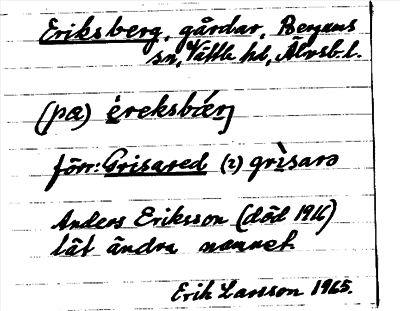 Eriksberg, gårdar, Bergums
sn, Vättle hd, Älvsb. l.
(pæ) èreksbǽrj
förr: Grisared (2) grìsarə
Anders Eriksson (död 1916)
lät ändra namnet.
Erik Larsson 1965.